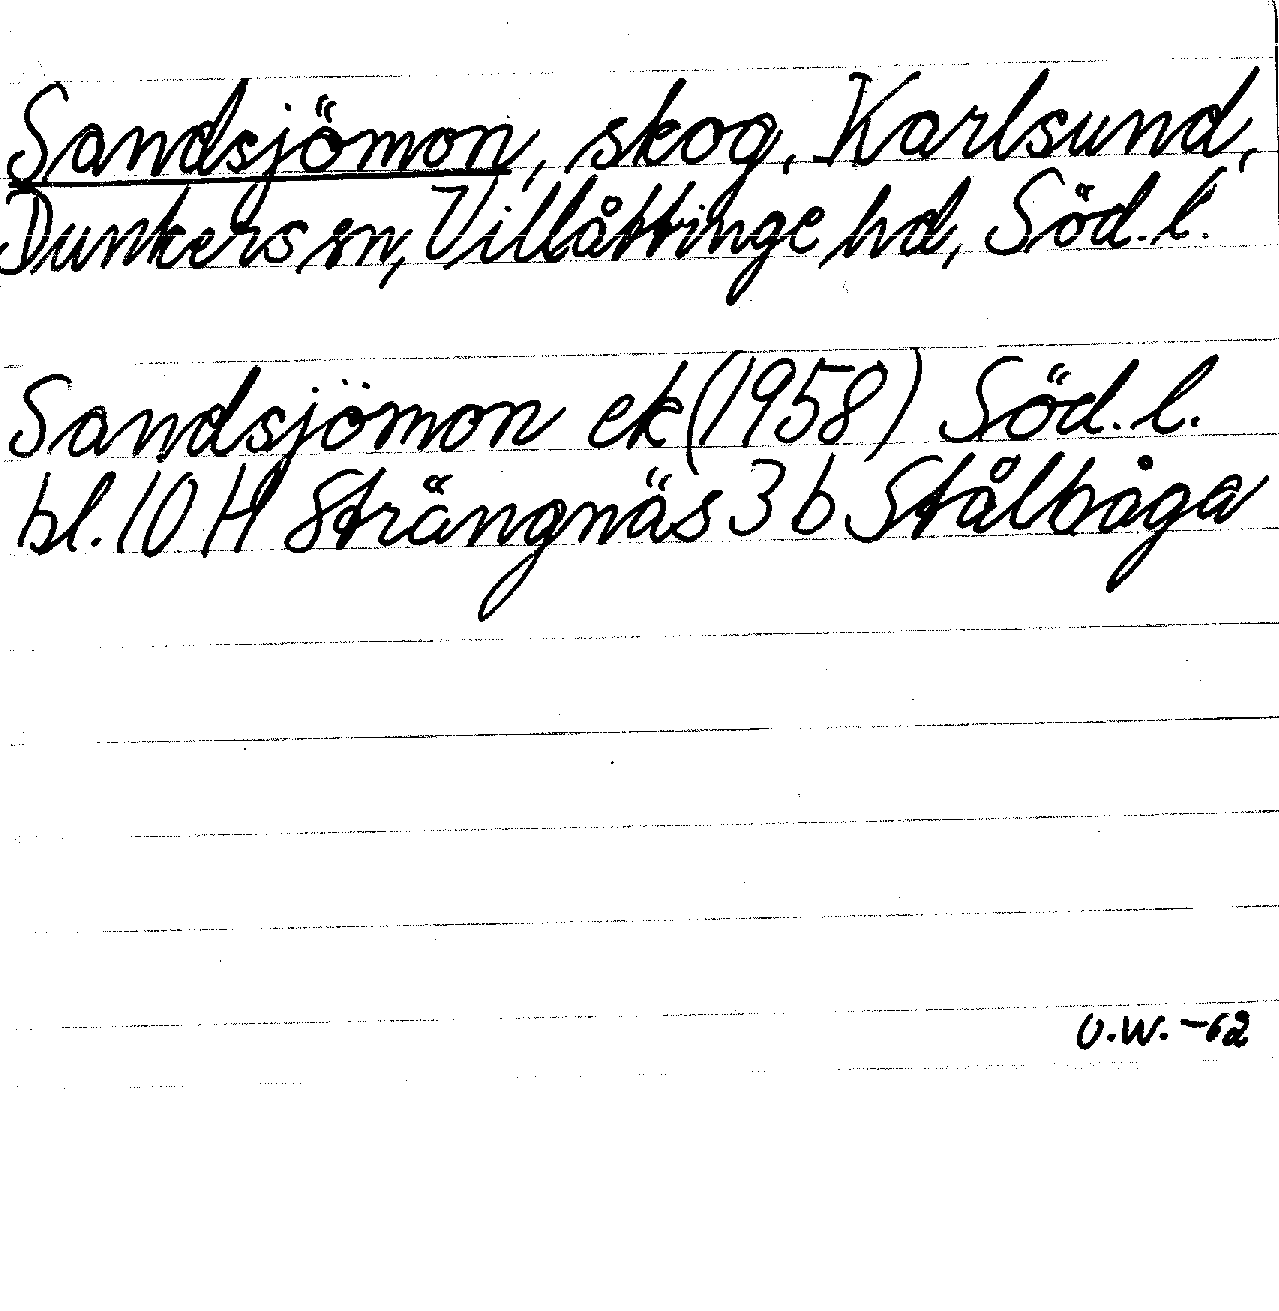 Sandsjömon, skog, Karlsund,
Dunkers sn, Villåttinge hd, Söd. l.
Sandsjömon ek (1958) Söd. l.
bl. 10 H Strängnäs 3 b Stålbåga
O.W. -62